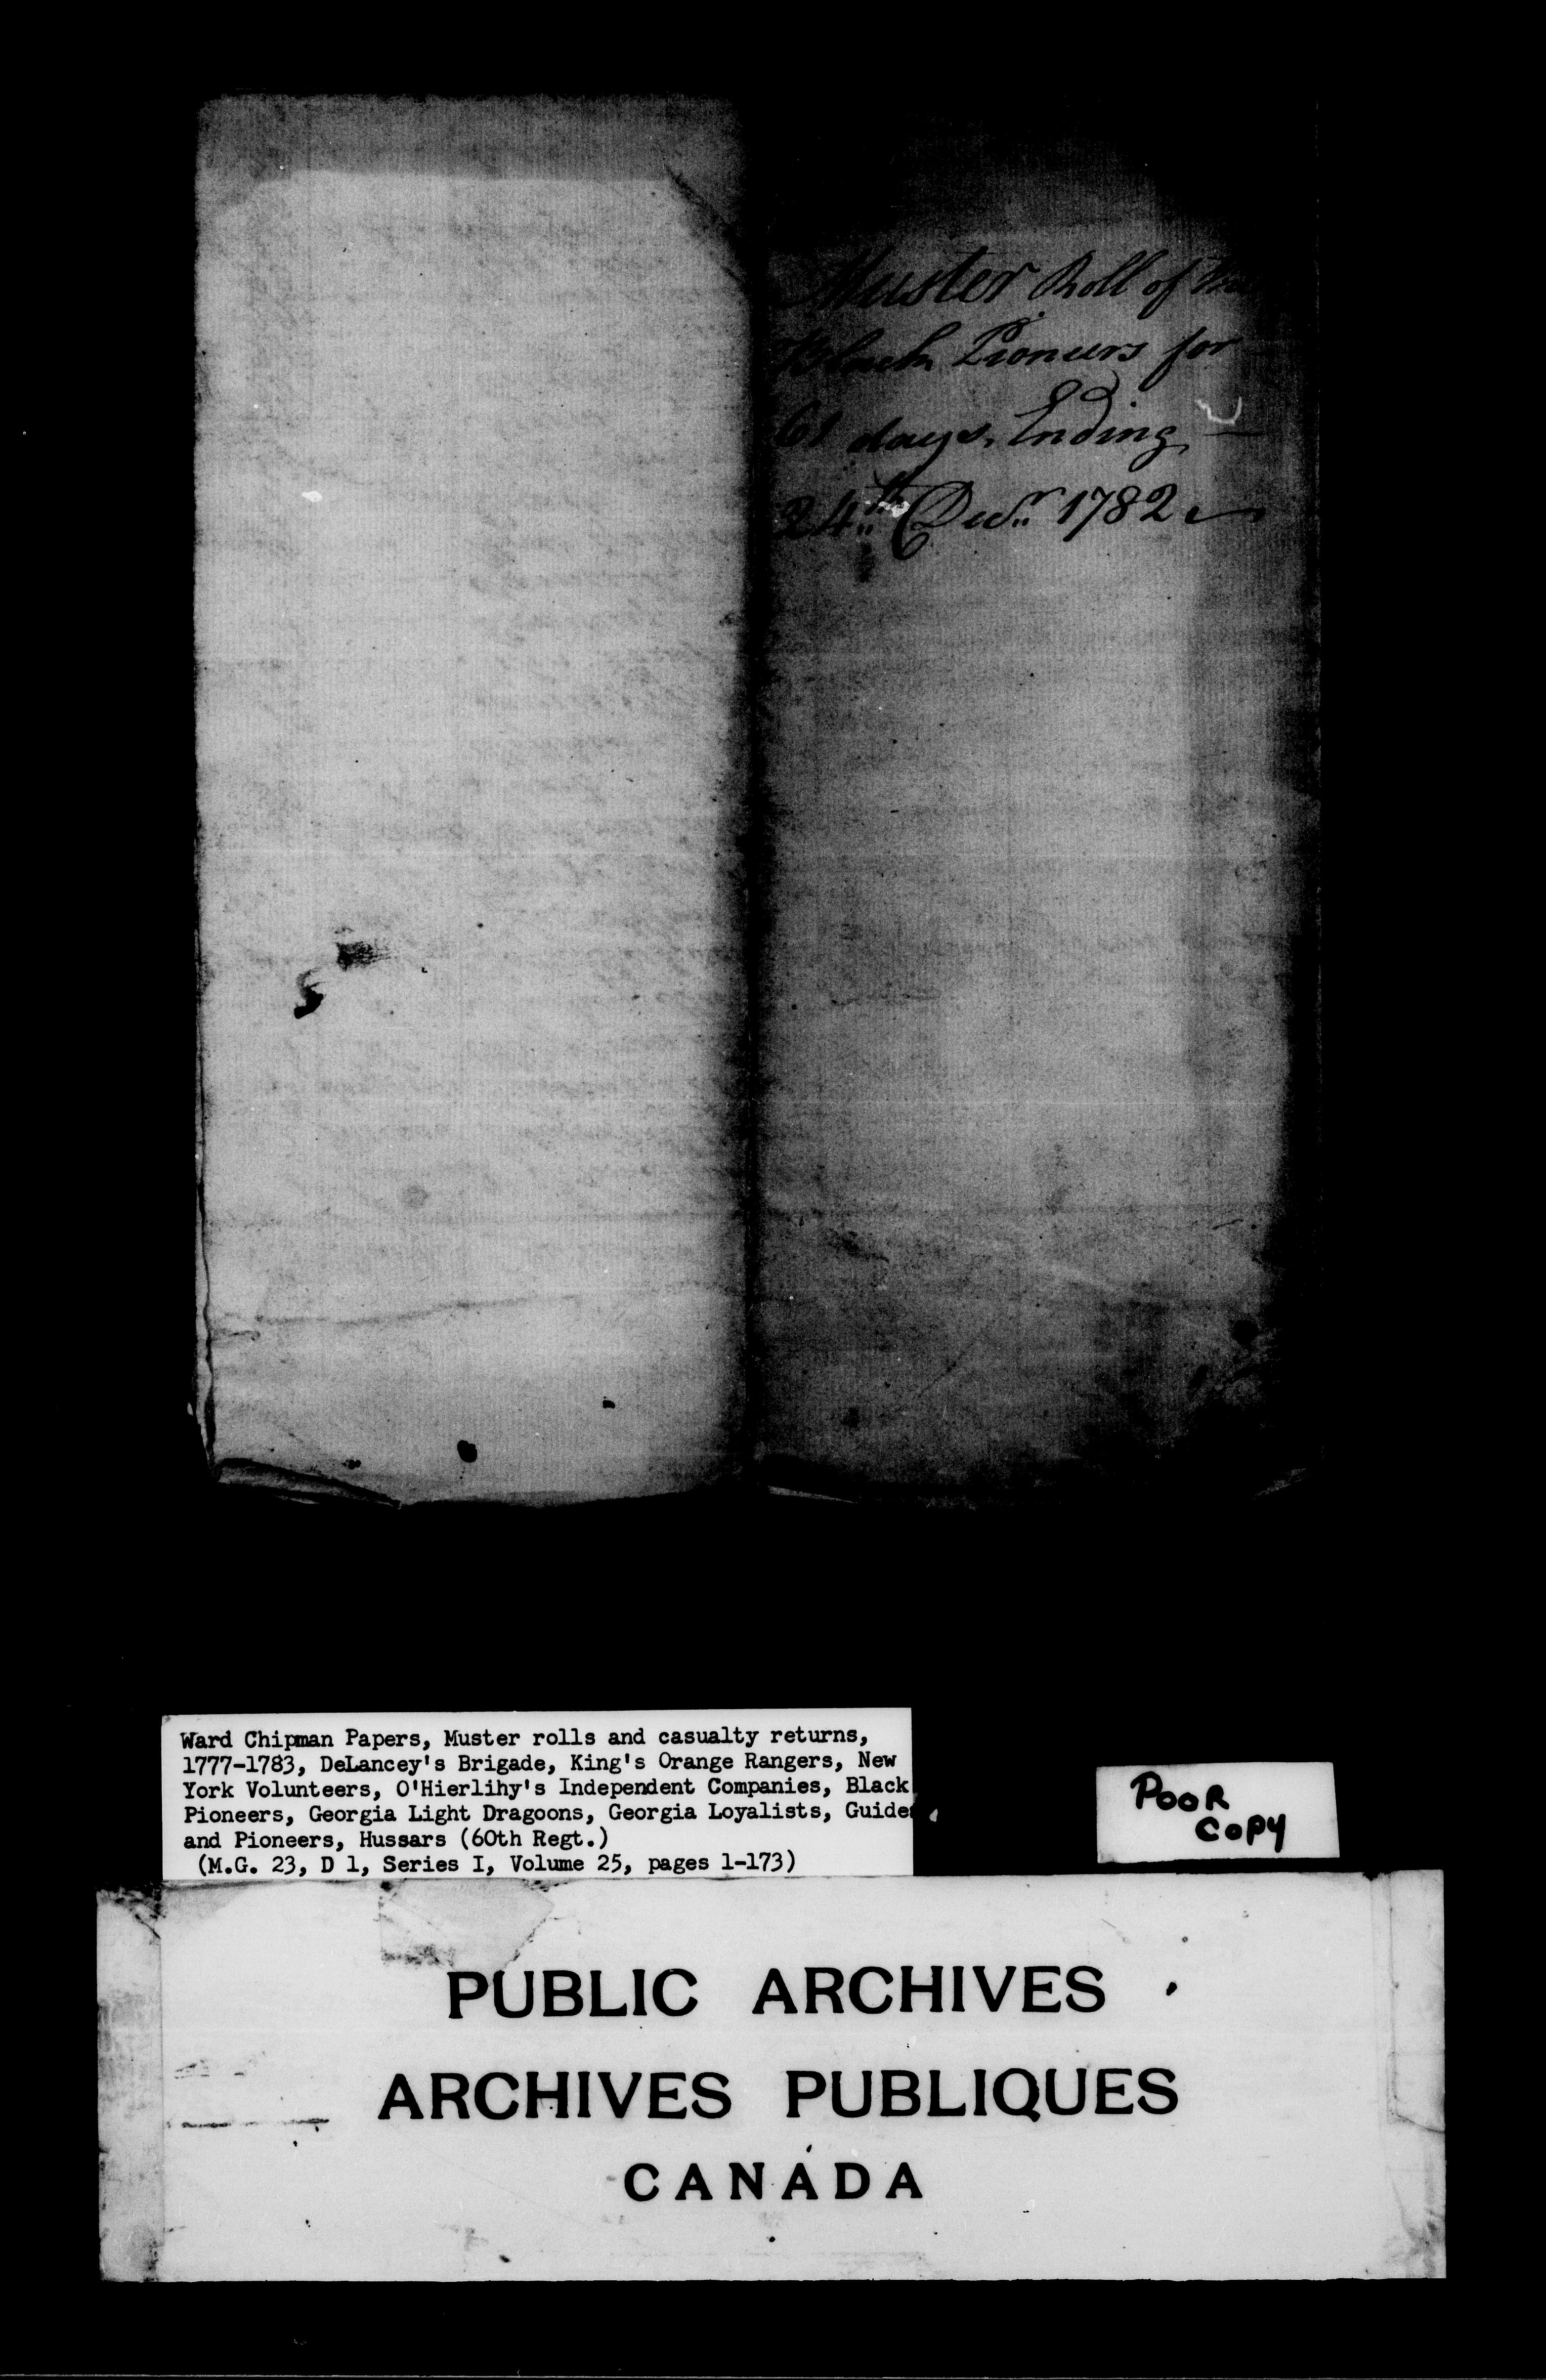 Muster Roll of the
Black Pioneers for
61 days, Ending —
24th Decr 1782
Ward Chipman Papers, Muster rolls and casualty returns,
1777-1783, DeLancey's Brigade, King's Orange Rangers, New
York Volunteers, O'Hierlihy's Independent Companies, Black
Pioneers, Georgia Light Dragoons, Georgia Loyalists, Guides
and Pioneers, Hussars (60th Regt.)
(M.G. 23, D 1, Series I, Volume 25, pages 1-173)
POOR
COPY
PUBLIC ARCHIVES
ARCHIVES PUBLIQUES
CANADA